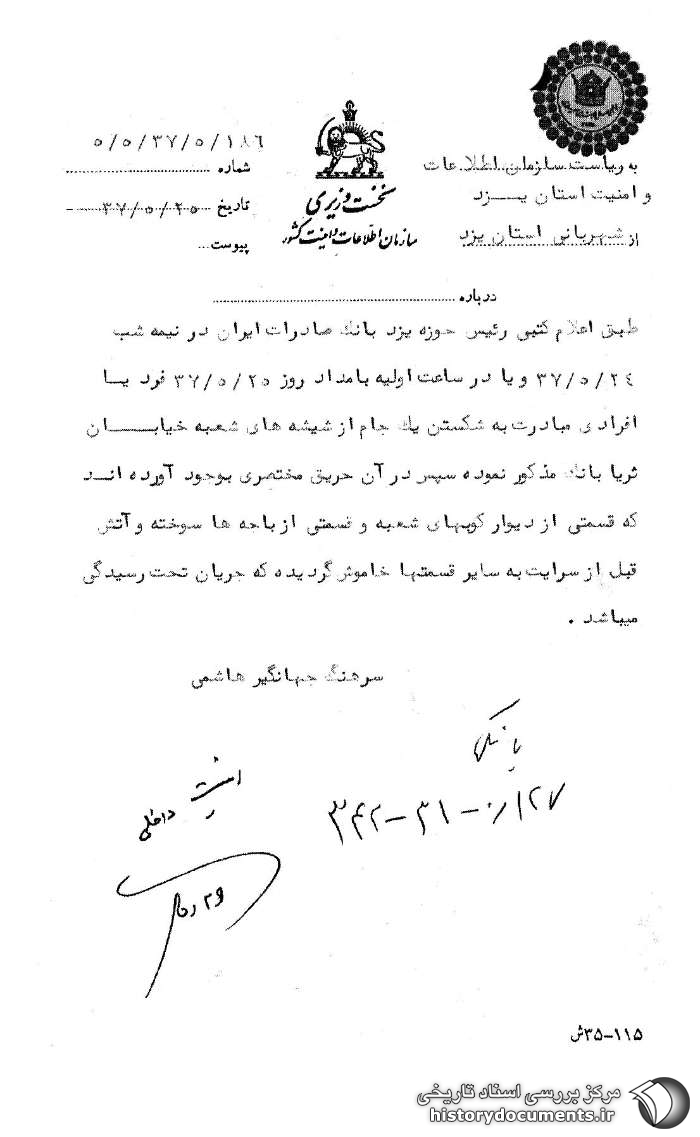 ۵/۵/۳۷/۵/۱۸۶
شماره
تاریخ ۳۷/۵/۲۵
پیوست
نخست وزیری
سازمان اطلاعات و امنیت کشور
به ریاست سازمان اطلاعات
و امنیت استان یــزد
از شهربانی استان یزد
درباره
طبق اعلام کتبی رئیس حوزه یزد بانک صادرات ایران در نیمه شب
۳۷/۵/۲۴ و یا در ساعت اولیه بامداد روز ۳۷/۵/۲۵ فرد یــا
افرادی مبادرت به شکستن یک جام از شیشه های شعبه خیابــــان
ثریا بانک مذکور نموده سپس در آن حریق مختصری بوجود آورده انــد
که قسمتی از دیوار کوبهای شعبه و قسمتی از باجه ها سوخته و آتش
قبل از سرایت به سایر قسمتها خاموش گردیده که جریان تحت رسیدگی
میباشد .
سرهنگ جهانگیر هاشمی
بانکها
۳۴۲-۳۱-
امنیت داخلی
۳۵-۱۱۵ش
مرکز بررسی اسناد تاریخی
historydocuments.ir